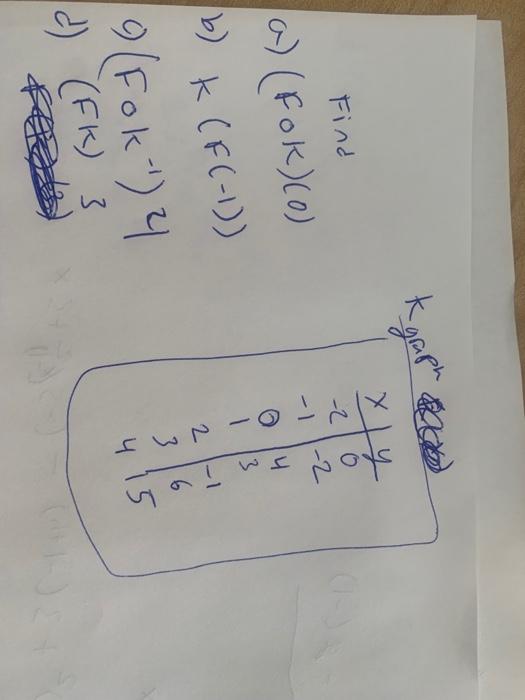 Find
a) (Fok)(0)
b) k(F(-1))
c) (Fok⁻¹) 4
d) (Fk) 3
K graph
x | y
-2 | 0
-1 | -2
0 | 4
1 | 3
2 | -1
3 | 6
4 | 5